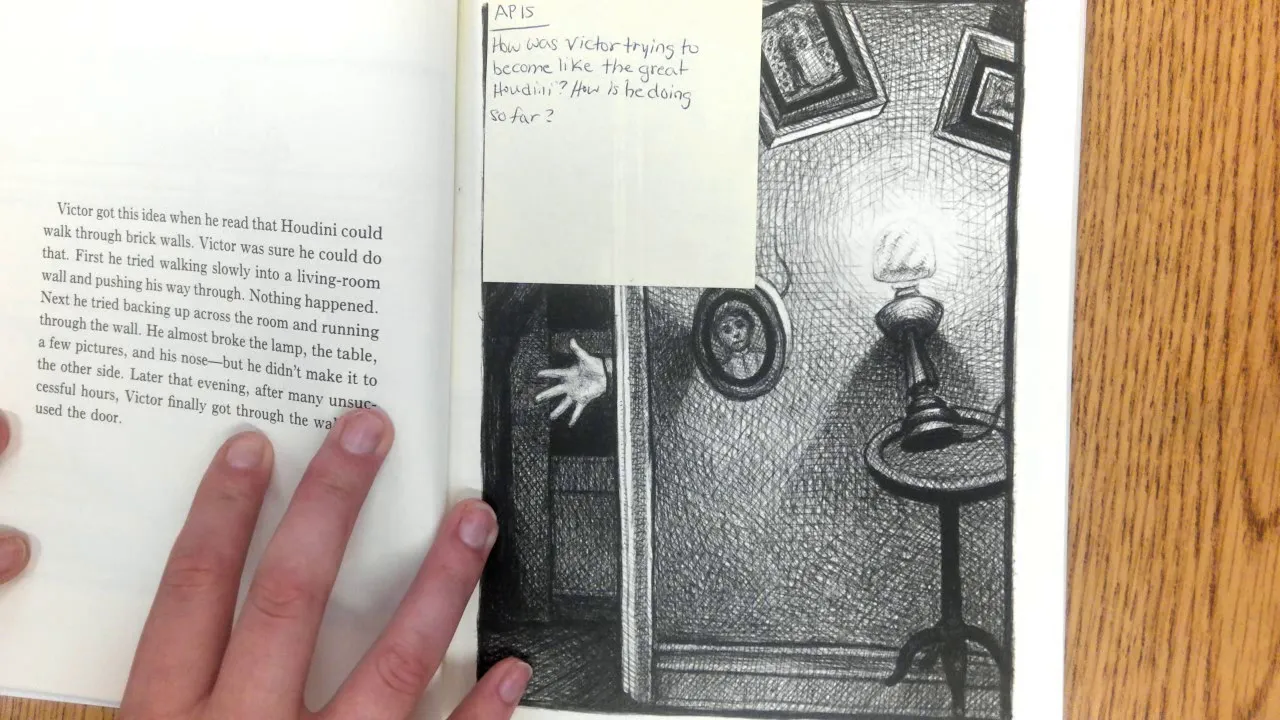 Victor got this idea when he read that Houdini could
walk through brick walls. Victor was sure he could do
that. First he tried walking slowly into a living-room
wall and pushing his way through. Nothing happened.
Next he tried backing up across the room and running
through the wall. He almost broke the lamp, the table,
a few pictures, and his nose—but he didn't make it to
the other side. Later that evening, after many unsuc-
cessful hours, Victor finally got through the
used the door.
AP15
How was Victor trying to
become like the great
Houdini? How is he doing
so far?